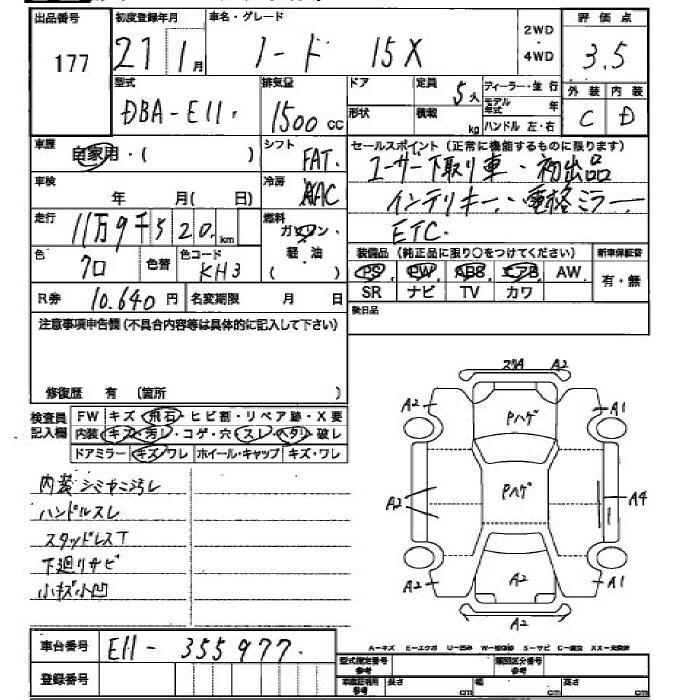 出品番号 初度登録年月 車名・グレード 評価点
177 21 1月 ノート 15X 2WD・4WD 3.5
型式 排気量 ドア 定員 ディーラー・並行 外装 内装
DBA-E11 1500cc 形状 積載 5人 kg モデル年式 年 ハンドル 左・右 C D
車歴 自家用・( ) シフト FAT セールスポイント(正常に機能するものに限ります)
ユーザー下取り車・初出品
車検 年 月( 日) 冷房 AAC インテリキー・電格ミラー
走行 11万9千520km 燃料 ガソリン・軽油 ( ) ETC
色 クロ 色替 色コード KH3 装備品(純正品に限り○をつけてください) 新車保証書
PS PW ABS エアB AW 有・無
R券 10,640円 名変期限 月 日 SR ナビ TV カワ
注意事項申告欄(不具合内容等は具体的に記入して下さい) 後日品
修復歴 有 (箇所 )
検査員記入欄 FW キズ・飛石・ヒビ割・リペア跡・X要
内装 キズ・汚レ・コゲ・穴・スレ・ヘタリ・破レ
ドアミラー キズ・ワレ ホイール・キャップ キズ・ワレ
内装シミヤニ汚レ
ハンドルスレ
スタッドレスT
下廻リサビ
小キズ小凹
スリA A2
A2 Pハゲ A1
A2 Pハゲ A4
A2 A2 A1
A2
A-キズ E-エクボ U-凹み W-補修跡 S-サビ C-腐食 XX-交換済
車台番号 E11-355977
登録番号
型式指定番号 参考 類別区分番号 参考
車庫証明用 参考 長さ cm 幅 cm 高さ cm